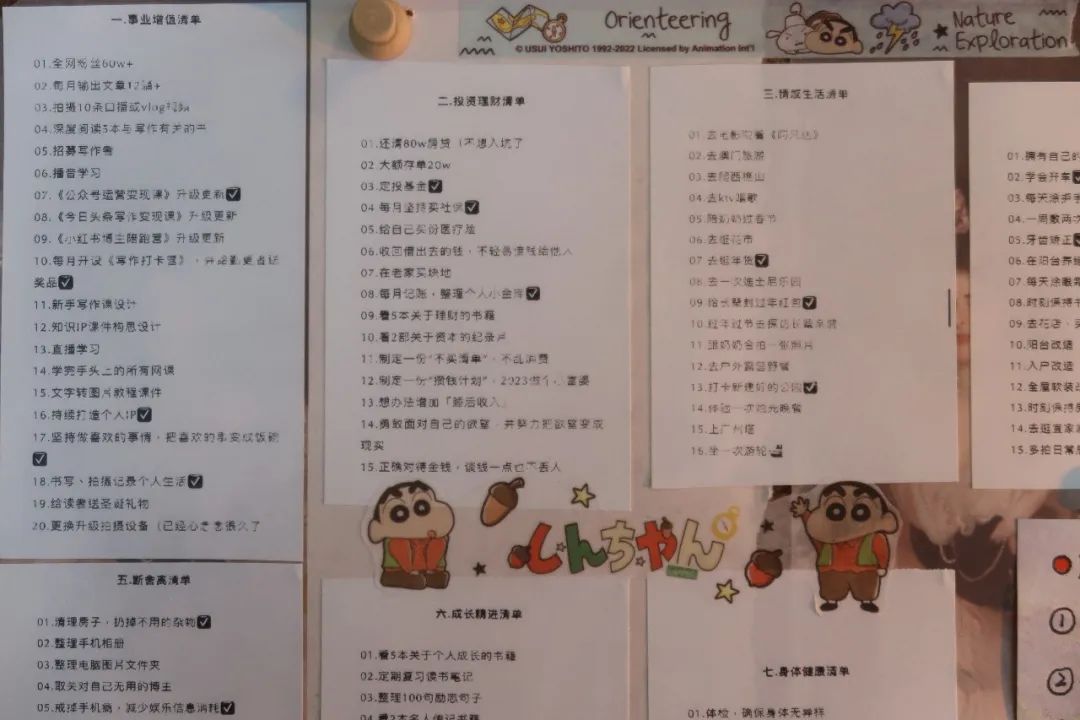 一.事业增值清单
01.全网粉丝60w+
02.每月输出文章12篇+
03.拍摄10条口播或vlog视频
04.深度阅读5本与写作有关的书
05.招募写作者
06.播音学习
07.《公众号运营变现课》升级更新☑
08.《今日头条写作变现课》升级更新
09.《小红书博主陪跑营》升级更新
10.每月开设《写作打卡营》，
奖品☑
11.新手写作课设计
12.知识IP课件构思设计
13.直播学习
14.学完手头上的所有网课
15.文字转图片教程课件
16.持续打造个人IP☑
17.坚持做喜欢的事情，把喜欢的事变成饭碗
☑
18.书写、拍摄记录个人生活☑
19.给读者送圣诞礼物
20.更换升级拍摄设备（已经心念念很久了
Orienteering
© USUI YOSHITO 1992-2022 Licensed by Animation Int'l
Nature
Exploration
二.投资理财清单
01.还清80w房贷（不想入坑了
02 大额存单20w
03.定投基金☑
04 每月坚持买社保☑
05.给自己买份医疗险
06.收回借出去的钱，不轻易借钱给他人
07.在老家买块地
08.每月记账，整理个人小金库☑
09.看5本关于理财的书籍
10.看2部关于资本的纪录片
11.制定一份“不买清单”，不乱消费
12.制定一份“攒钱计划”，2023做个小富婆
13.想办法增加「睡后收入」
14.勇敢面对自己的欲望，并努力把欲望变成
现实
15.正确对待金钱，谈钱一点也不丢人
三.情感生活清单
01 去电影院看《阿凡达》
02.去澳门旅游
03.去爬西樵山
04.去ktv唱歌
05.陪奶奶过春节
06.去逛花市
07 去逛年货☑
08.去一次迪士尼乐园
09 给长辈封过年红包☑
10.过年过节去探访长辈亲戚
11.跟奶奶合拍一张照片
12.去户外露营野餐
13.打卡新建好的公园☑
14.体验一次烛光晚餐
15.上广州塔
16.坐一次游轮
01.拥有自己的
02.学会开车☑
03.每天涂护手
04.一周敷两次
05.牙齿矫正
06.在阳台养
07.每天涂眼霜
08.时刻保持
09.去花店、买
10.阳台改造
11.入户改造
12.全屋软装改
13.时刻保持
14.去逛宜家
15.多拍日常
しんちゃん
五.断舍离清单
01.清理房子，扔掉不用的杂物☑
02.整理手机相册
03.整理电脑图片文件夹
04.取关对自己无用的博主
05.戒掉手机瘾，减少娱乐信息消耗☑
六.成长精进清单
01.看5本关于个人成长的书籍
02.定期复习读书笔记
03.整理100句励志句子
04 看2本名人传记书籍
七.身体健康清单
01.体检，确保身体无异样
①
②